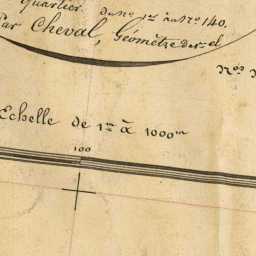 Quartier. du N° 1er au N° 140.
Par Cheval, Géomètre de 1re cl
Nos N
Echelle de 1m à 1000m
100